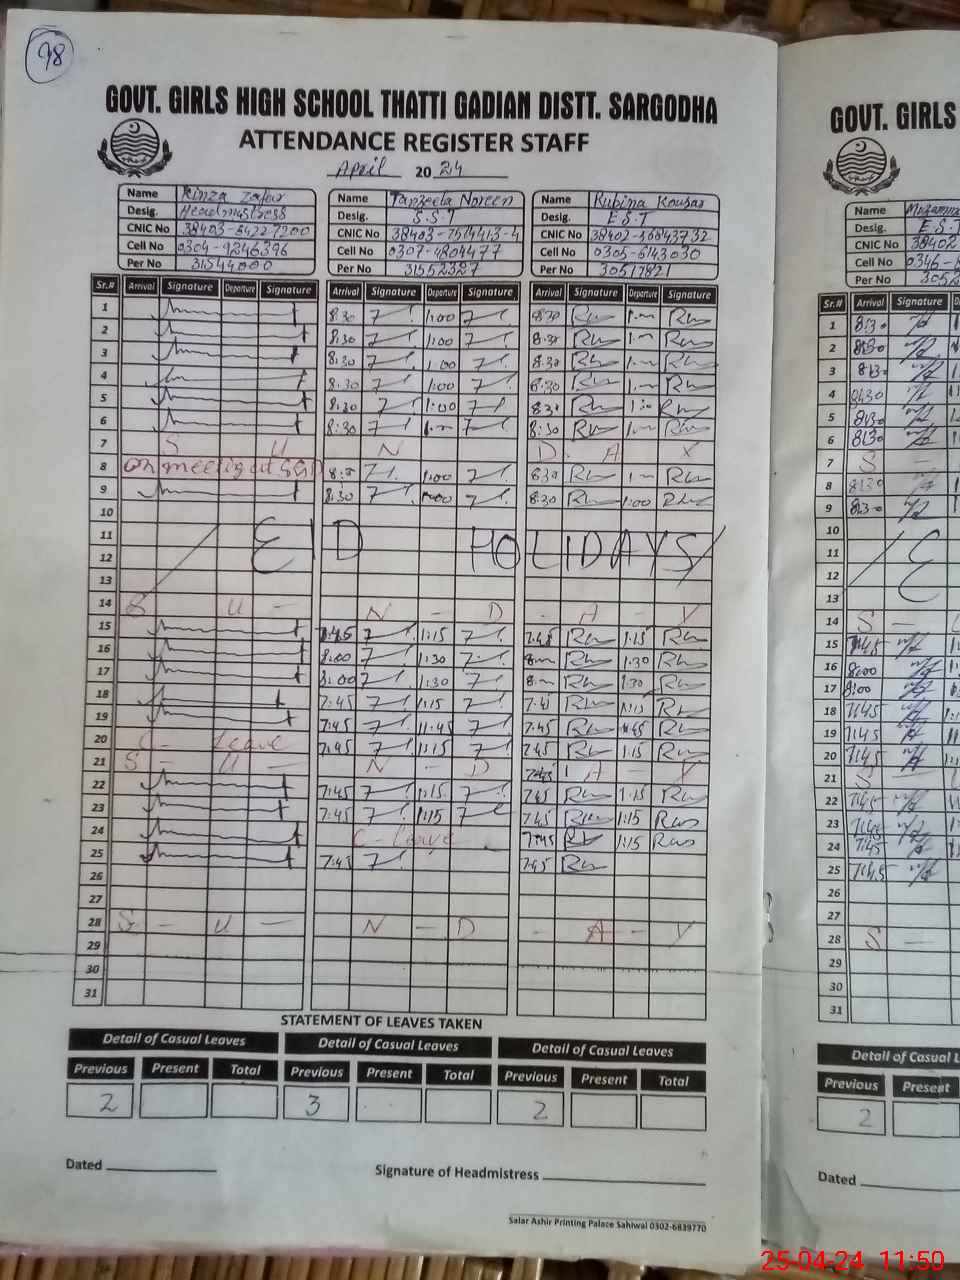 98
GOVT. GIRLS HIGH SCHOOL THATTI GADIAN DISTT. SARGODHA
ATTENDANCE REGISTER STAFF
April 2024
Name Kinza Zafar
Desig. Headmistress
CNIC No 38403-6422720-0
Cell No 0304-9246396
Per No 31544000
Name Tanzeela Noreen
Desig. S.S.T
CNIC No 38403-7514413-4
Cell No 0307-4804477
Per No 31552327
Name Rubina Kousar
Desig. E.S.T
CNIC No
Cell No 0305-6143030
Per No 30517821
Sr.# Arrival Signature Departure Signature Arrival Signature Departure Signature Arrival Signature Departure Signature
1 8:30 1:00 8:30
2 8:30 1:00 8:30
3 8:30 1:00 8:30
4 8:30 1:00 8:30
5 8:30 1:00 8:30
6 8:30 8:30
7 S U N D A Y
8 On meeting at 8:30 1:00 8:30
9 8:30 1:00 8:30 1:00
10
11 EID HOLIDAYS
12
13
14 S U - N - D - A - Y
15 7:45 1:15 7:45 1:15
16 8:00 1:30 1:30
17 8:00 1:30 1:30
18 7:45 1:15 7:45 1:15
19 7:45 11:45 7:45 11:45
20 C- leave 7:45 1:15 7:45 1:15
21 S - U - N - D 7:45 A - Y
22 7:45 1:15 7:45 1:15
23 7:45 1:15 7:45 1:15
24 C - leave 7:45 1:15
25 7:45 7:45
26
27
28 S - U - N - D - A - Y
29
30
31
STATEMENT OF LEAVES TAKEN
Detail of Casual Leaves Detail of Casual Leaves Detail of Casual Leaves
Previous Present Total Previous Present Total Previous Present Total
2 3 2
Dated
Signature of Headmistress
Salar Ashir Printing Palace Sahiwal 0302-6839770
GOVT. GIRLS
Name
Desig. E.S.T
CNIC No 38402
Cell No 0346-
Per No 3052
Sr.# Arrival Signature
1 8:30
2 8:30
3 8:30
4 8:30
5 8:30
6 8:30
7 S -
8 8:30
9 8:30
10
11 E
12
13
14 S -
15 7:45
16 8:00
17 8:00
18 7:45
19 7:45
20 7:45
21 S -
22 7:45
23 7:45
24 7:45
25 7:45
26
27
28 S -
29
30
31
Detail of Casual L
Previous Present
2
Dated
25-04-24 11:50